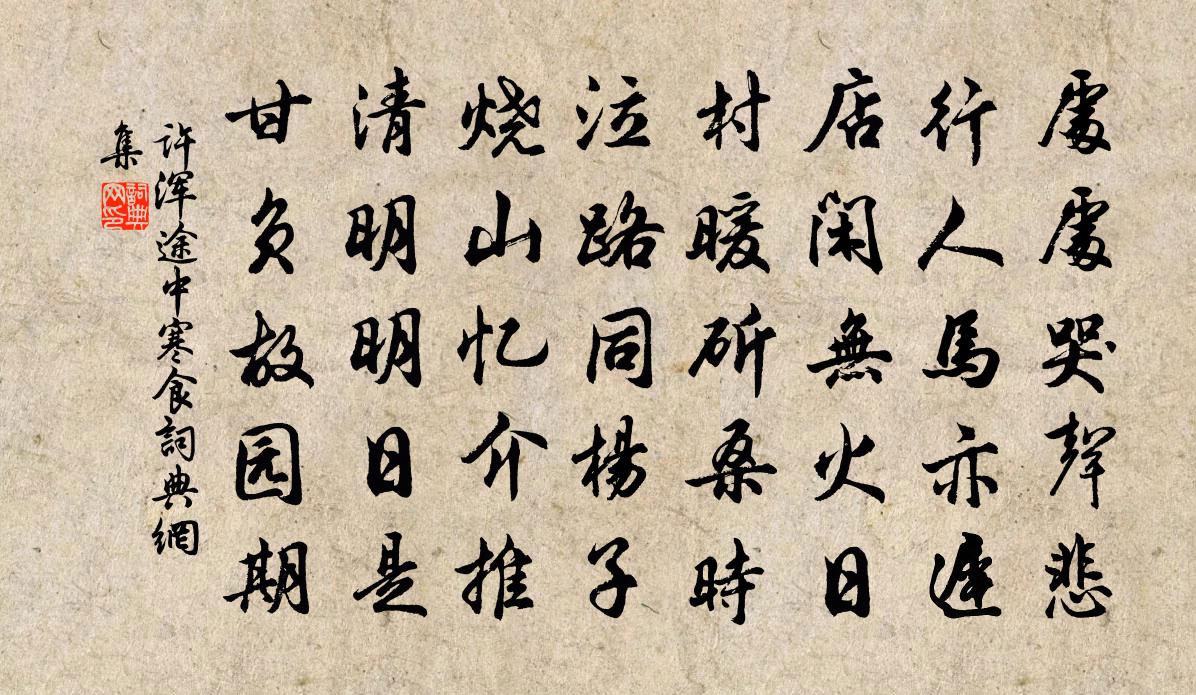 處處哭聲悲
行人馬亦遲
店閑無火日
村暖斫桑時
泣路同楊子
烧山忆介推
清明明日是
甘负故园期
许浑途中寒食詞典網
集
詞典网印